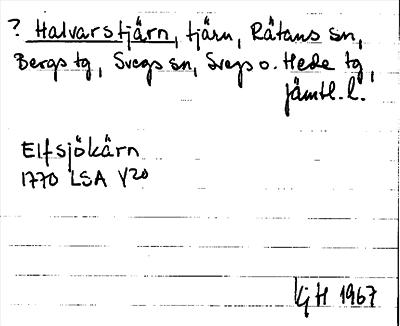 ? Halvarstjärn, tjärn, Rätans sn,
Bergs tg, Svegs sn, Svegs o. Hede tg,
Jämtl. l.
Elfsjökärn
1770 LSA Y20
GH 1967